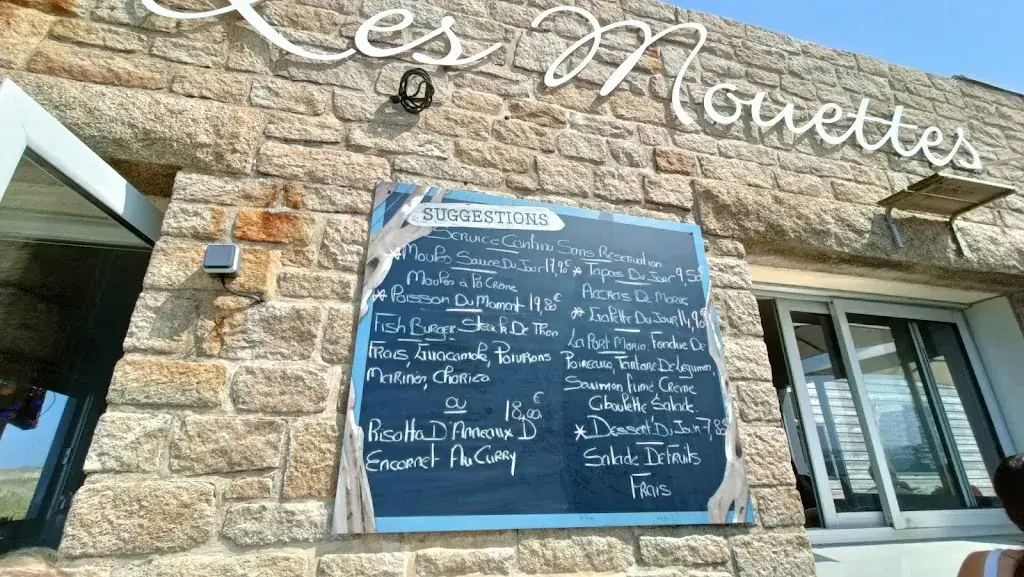 Les Mouettes
SUGGESTIONS
Service Continu Sans Réservation
* Moules Sauce Du Jour 17,95
Moules à la Crème
* Poisson Du Moment 19,80€
Fish Burger - Steack De Thon
Frais, Guacamole, Poivrons
Marinés, Chorizo
ou
18,00€
Risotto D'Anneaux D
Encornet Au Curry
* Tapas Du Jour 9,50
Accras De Morue
* Galette Du Jour 14,90
La Port Maria, Fondue De
Poireaux, Tartare De Légumes,
Saumon fumé Crème
Ciboulette Salade.
* Dessert Du Jour 7,80€
Salade De Fruits
Frais